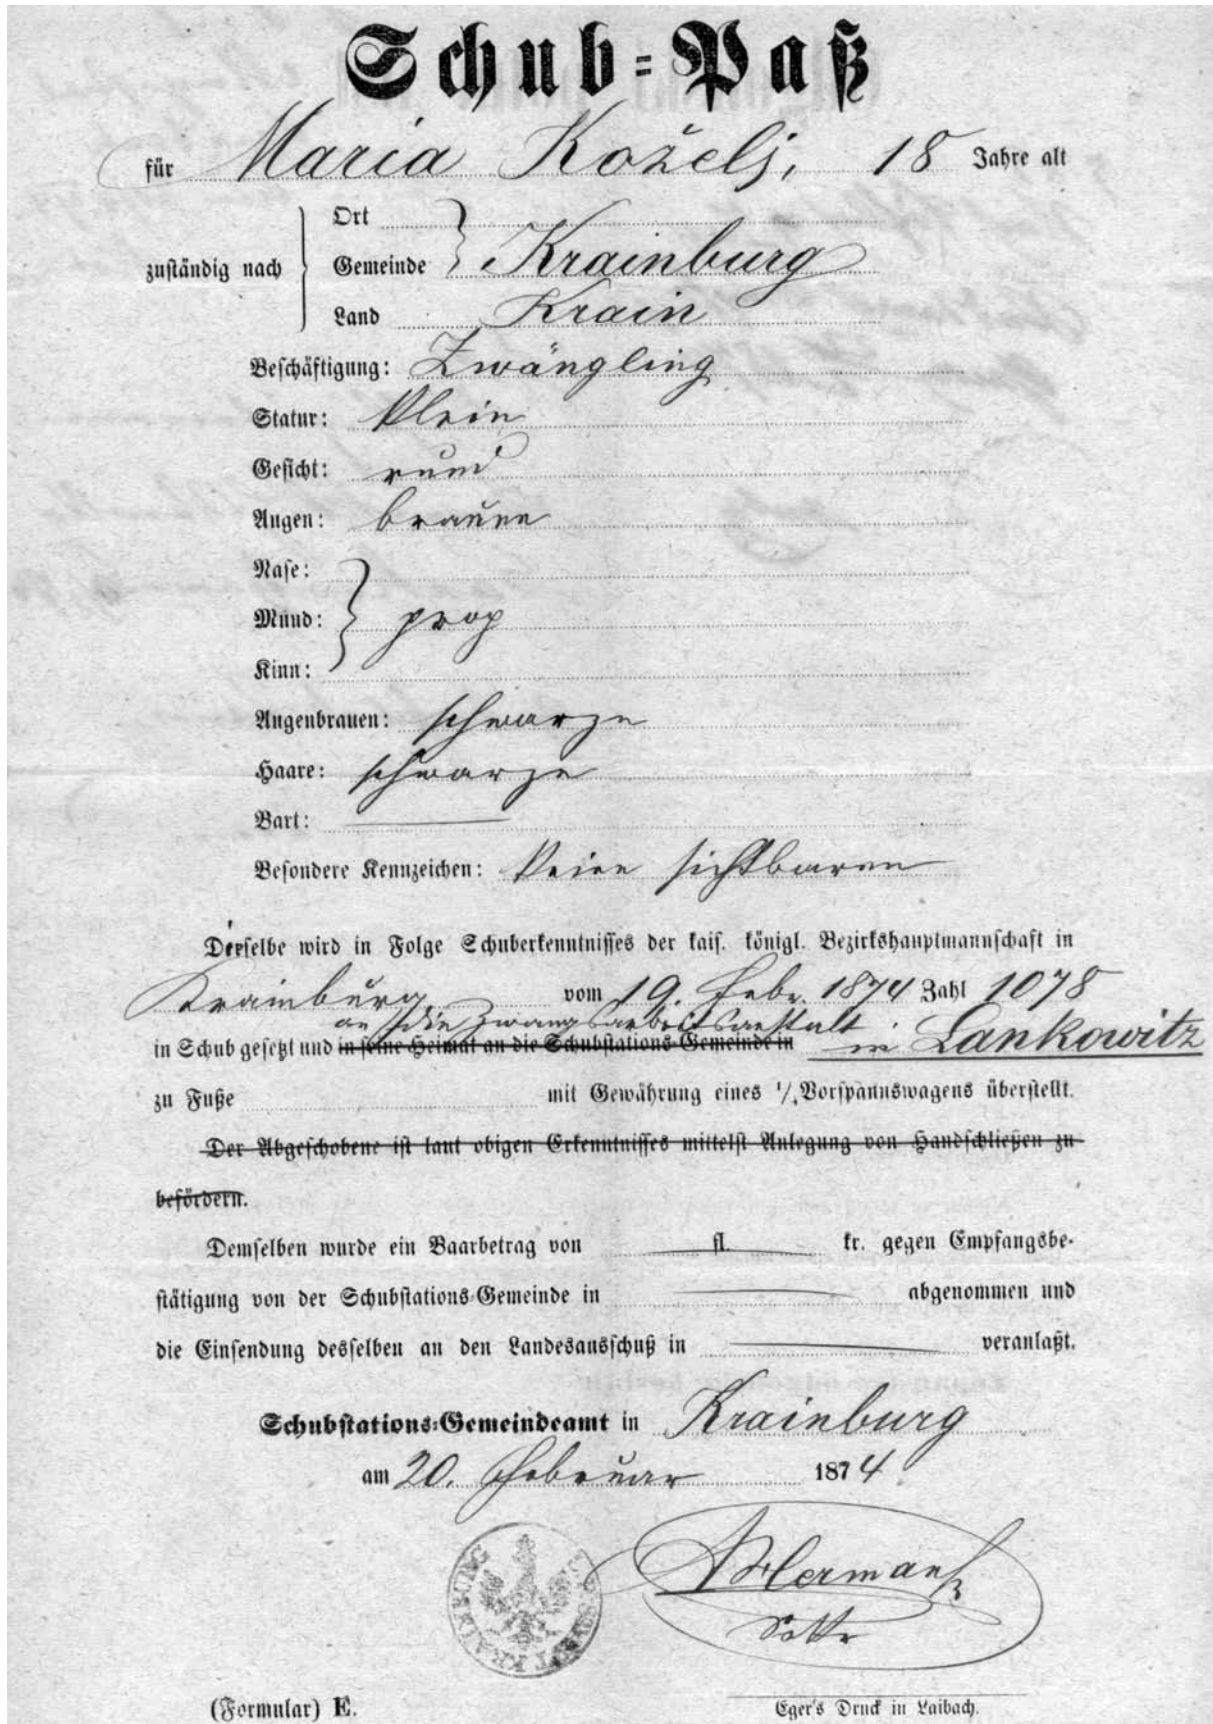 Schub-Paß
für Maria Koželj, 18 Jahre alt
Ort
zuständig nach Gemeinde Krainburg
Land Krain
Beschäftigung: Zwängling
Statur: klein
Gesicht: rund
Augen: braune
Nase:
Mund: prop
Kinn:
Augenbrauen: schwarze
Haare: schwarze
Bart:
Besondere Kennzeichen: keine sichtbaren
Derselbe wird in Folge Schuberkenntnisses der kais. königl. Bezirkshauptmannschaft in
Krainburg vom 19. Febr. 1874 Zahl 1078
an die Zwangsarbeitsanstalt
in Schub gesetzt und in seine Heimat an die Schubstations-Gemeinde in in Lankowitz
zu Fuße mit Gewährung eines 1/ Vorspannswagens überstellt.
Der Abgeschobene ist laut obigen Erkenntnisses mittelst Anlegung von Handschließen zu
befördern.
Demselben wurde ein Baarbetrag von fl. kr. gegen Empfangsbe-
stätigung von der Schubstations-Gemeinde in abgenommen und
die Einsendung desselben an den Landesausschuß in veranlaßt.
Schubstations-Gemeindeamt in Krainburg
am 20. Februar 1874
KRAINBURG
(Formular) E.
Eger's Druck in Laibach.